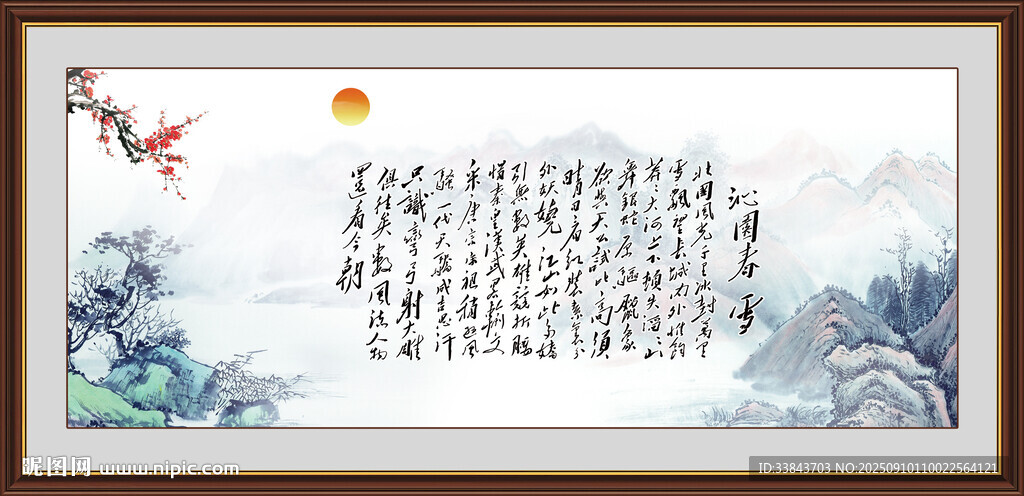 沁園春 雪
北國風光千里冰封萬里
雪飄望長城内外惟餘
莽々大河上下頓失滔々山
舞銀蛇原驅臘象
欲與天公試比高須
晴日看紅裝素裹分
外妖嬈 江山如此多嬌
引無數英雄競折腰
惜秦皇漢武略輸文
采唐宗宋祖稍遜風
騷一代天驕成吉思汗
只識彎弓射大雕
俱往矣數風流人物
還看今朝
昵图网 www.nipic.com
ID:33843703 NO:20250910110022564121